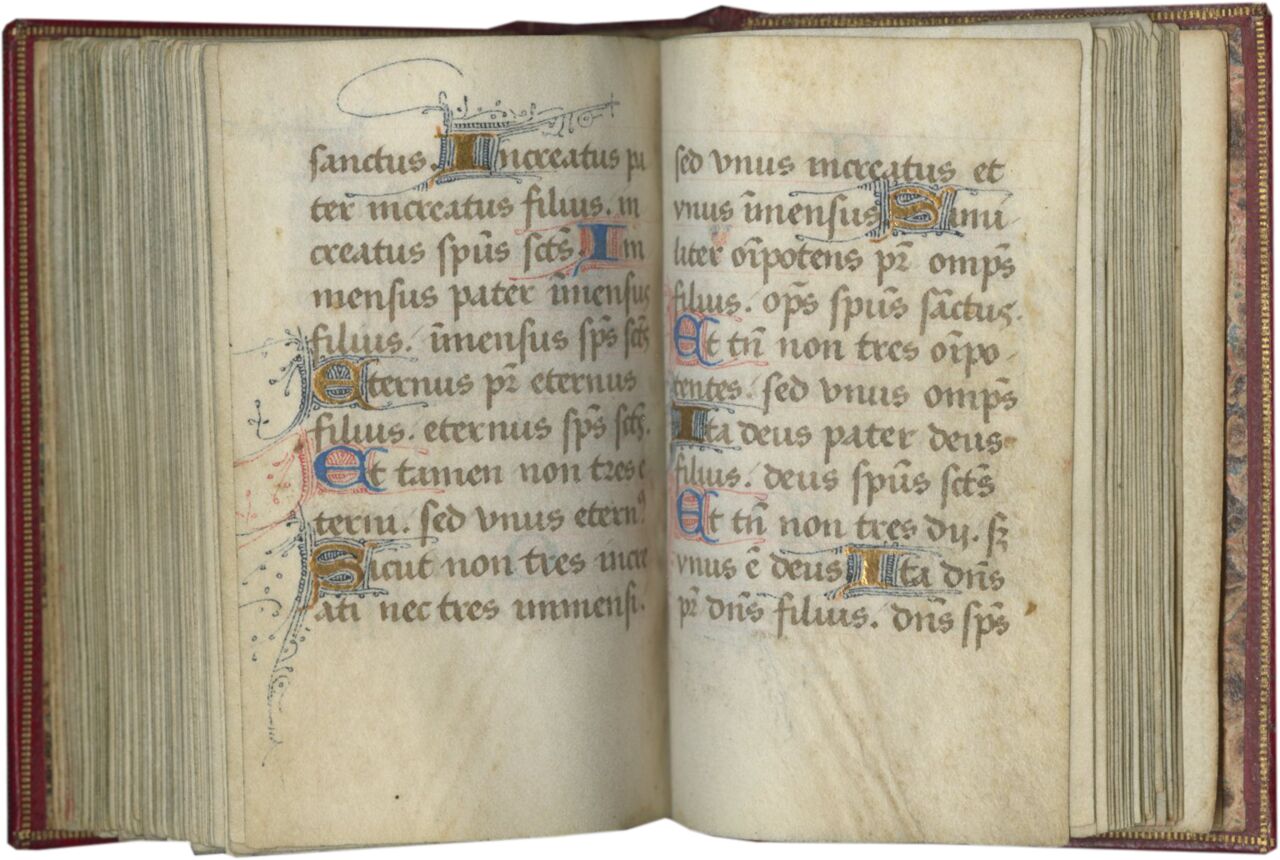 sanctus. Increatus pa
ter increatus filius. in
creatus spūs sctūs. Im
mensus pater īmensus
filius. īmensus spūs sctūs
Eternus pr̄ eternus
filius. eternus spūs sctūs.
Et tamen non tres e
terni. sed vnus eternꝰ
Sicut non tres incre
ati nec tres immensi.
sed vnus increatus et
vnus īmensus Simi
liter oīpotens pr̄ omps̄
filius. ops̄ spūs sāctus.
Et tn̄ non tres oīpo
tentes. sed vnus omps̄
Ita deus pater deus
filius. deus spūs sctūs
Et tn̄ non tres dij. sꝫ
vnus ē deus Ita dn̄s
pr̄ dn̄s filius. dn̄s spūs